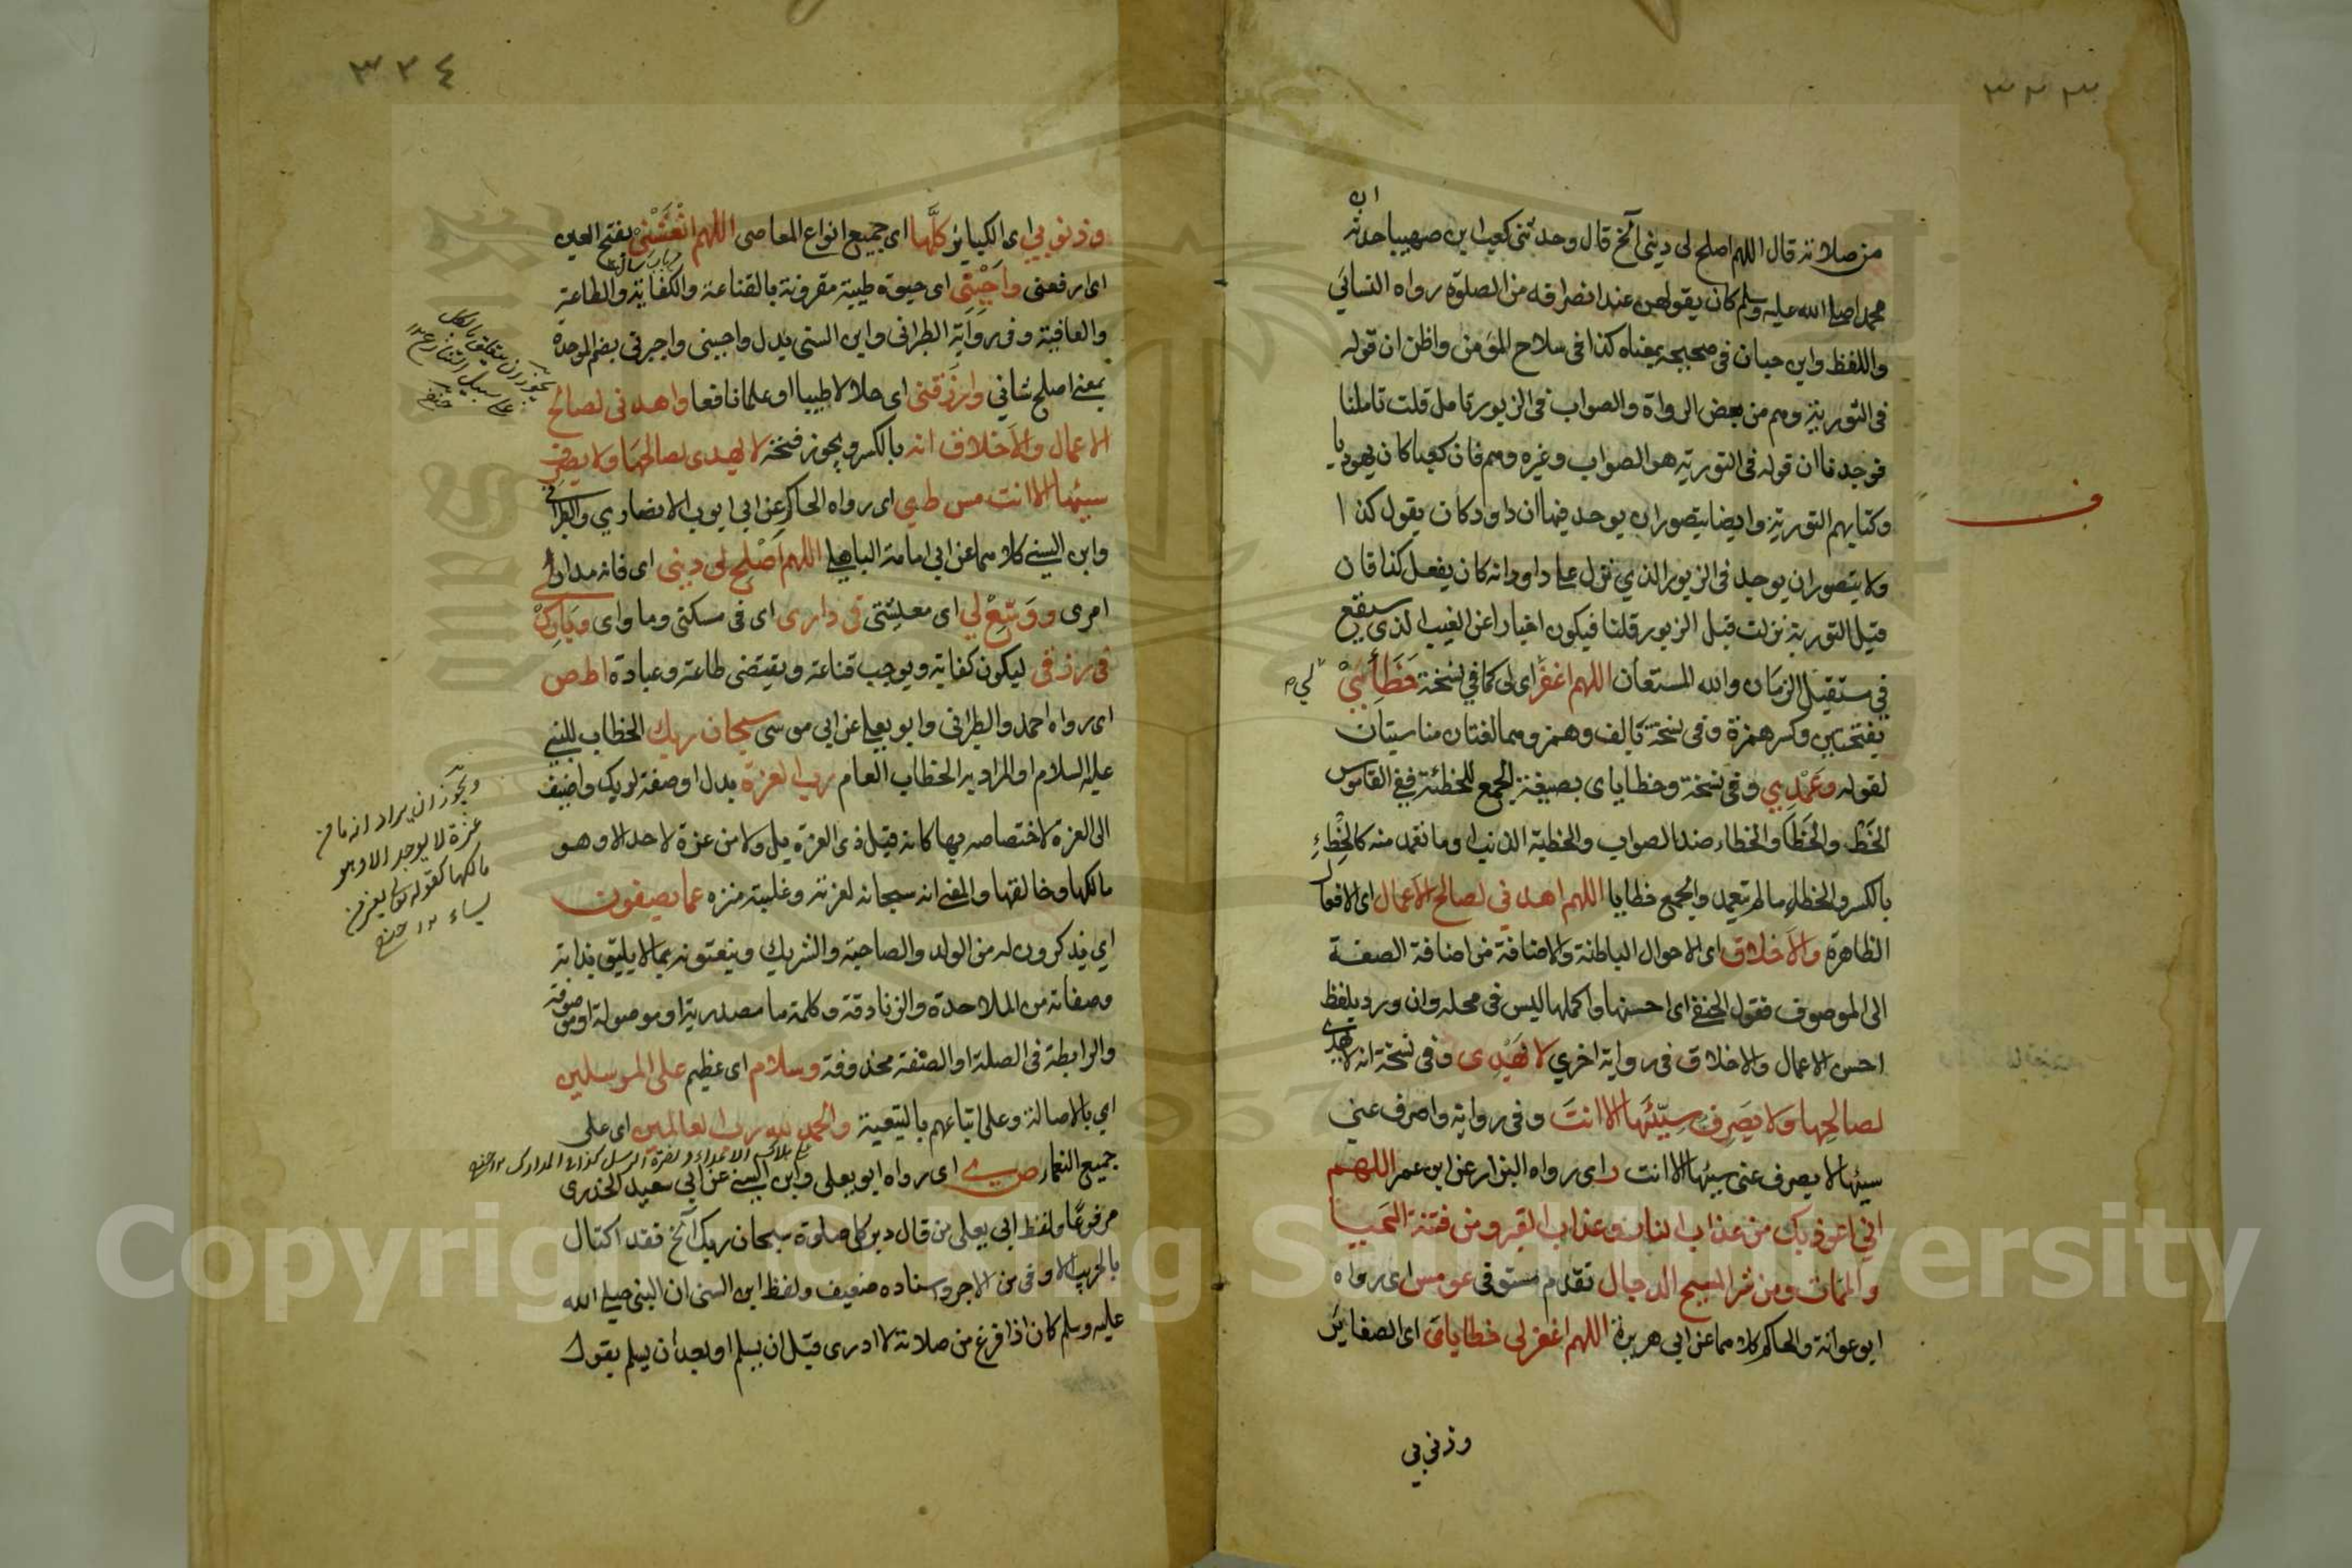 ٣٣٣
ان
من صلاته قال اللهم اصلح لي ديني آلخ قال وحدثني كعب ابن صهيبا حدثه
محمدا صلى الله عليه وسلم كان يقولهن عند انصرافه من الصلوة رواه النسائي
واللفظ وابن حبان في صحيحه بمعناه كذا في سلاح المؤمن واظن ان قوله
في التورية وهم من بعض الرواة والصواب في الزبور تامل قلت تاملنا
فوجدنا ان قوله في التورية هو الصواب وغيره وهم فان كعبا كان يهوديا
وكتابهم التورية وايضا يتصور ان يوجد فيها ان داود كان يقول كذا
ولا يتصور ان يوجد في الزبور الذي نزل على داود انه كان يفعل كذا فان
قيل التورية نزلت قبل الزبور قلنا فيكون اخبارا عن الغيب الذي سيقع
في مستقبل الزمان والله المستعان اللهم اغفر اي لي كما في نسخة خَطَأئي
بفتحتين وكسر همزة وفي نسخة بالف وهمز وهما لغتان مناسبتان
لقوله وعَمْدِي وفي نسخة وخطاياي بصيغة الجمع للخطئة ففي القاموس
الخَطْ والخَطَأ والخطاء ضد الصواب والخطية الذنب او ما تعمد منه كالخِطْءِ
بالكسر والخطأ ما لم يتعمد والجمع خطايا اللهم اهدني لصالح الاعمال اي الافعال
الظاهرة والاخلاق اي الاحوال الباطنة والاضافة من اضافة الصفة
الى الموصوف فقول الحنفي اي احسنها واكملها ليس في محله وان ورد بلفظ
احسن الاعمال والاخلاق في رواية اخري لا يَهْدِي وفي نسخة انه لا يهدي
لصالحها ولا يَصرِف سيّئَها الا انتَ وفي رواية واصرف عني
سيئها لا يصرف عني سيئها الا انت ر اي رواه البزار عن ابن عمر اللهم
اني اعوذ بك من عذاب النار وعذاب القبر ومن فتنة المحيا
والممات ومن شر المسيح الدجال تقدم مستوفى عو مس اي رواه
ابو عوانة والحاكم كلاهما عن ابي هريرة اللهم اغفر لي خطاياي اي الصغاير
وذنوبي
ف
٣٣٤
وذنوبي اي الكباير كلَّها اي جميع انواع المعاصي اللهم انْعَشْنِي بفتح العين
اي ارفعني واَحْيِني اي حيوة طيبة مقرونة بالقناعة والكفاية والطاعة
والعافية وفي رواية الطبراني وابن السني بدل واحيني واجبرني بضم الموحدة
بمعنى اصلح شاني وارزقني اي حلالا طيبا او علما نافعا واهدني لصالح
الاعمال والاخلاق انه بالكسر ويجوز فتحه لا يهدي لصالحها ولا يصرف
سيئها الا انت مس ط ي اي رواه الحاكم عن ابي ايوب الانصاري والطبراني
وابن السني كلاهما عن ابي امامة الباهلي اللهم اَصْلِح لي ديني اي فانه مدار
امري ووَسِّعْ لي اي معيشتي في داري اي في مسكني وماواي وبَارِكْ
في رزقي ليكون كفاية ويوجب قناعة ويقتضي طاعة وعبادة ا ط ص
اي رواه احمد والطبراني وابو يعلى عن ابي موسى سبحان ربك الخطاب للنبي
عليه السلام او المراد به الخطاب العام رب العزة بدل او صفة لربك واضيف
الى العزة لاختصاصه بها كانه قيل ذي العزة بل ولا من عزة لاحد الا وهو
مالكها وخالقها والمعنى انه سبحانه لعزته وغلبته منزه عما يصفون
اي يذكرون له من الولد والصاحبة والشريك وينعتونه بما لا يليق بذاته
وصفاته من الملاحدة والزنادقة وكلمة ما مصدرية او موصولة او موصوفة
والرابطة في الصلة او الصفة محذوفة وسلام اي عظيم على المرسلين
اي بالاصالة وعلى اتباعهم بالتبعية والحمد لله رب العالمين اي على
جميع النعما ص ي اي رواه ابو يعلى وابن السني عن ابي سعيد الخدري
مرفوعًا ولفظ ابي يعلى من قال دبر كل صلوة سبحان ربك آلخ فقد اكتال
بالجريب الاوفى من الاجر واسناده ضعيف ولفظ ابن السني ان النبي صلى الله
عليه وسلم كان اذا فرغ من صلاته لا ادري قبل ان يسلم او بعد ان يسلم يقول
يجوز ان يتعلق بالكل
على سبيل التنازع ١٢
ويجوز ان يراد انه ما من
عزة لا يوجد الا وهو
مالكها كقوله تعز من
تشاء ١٢
Copyright © King Saud University
1957